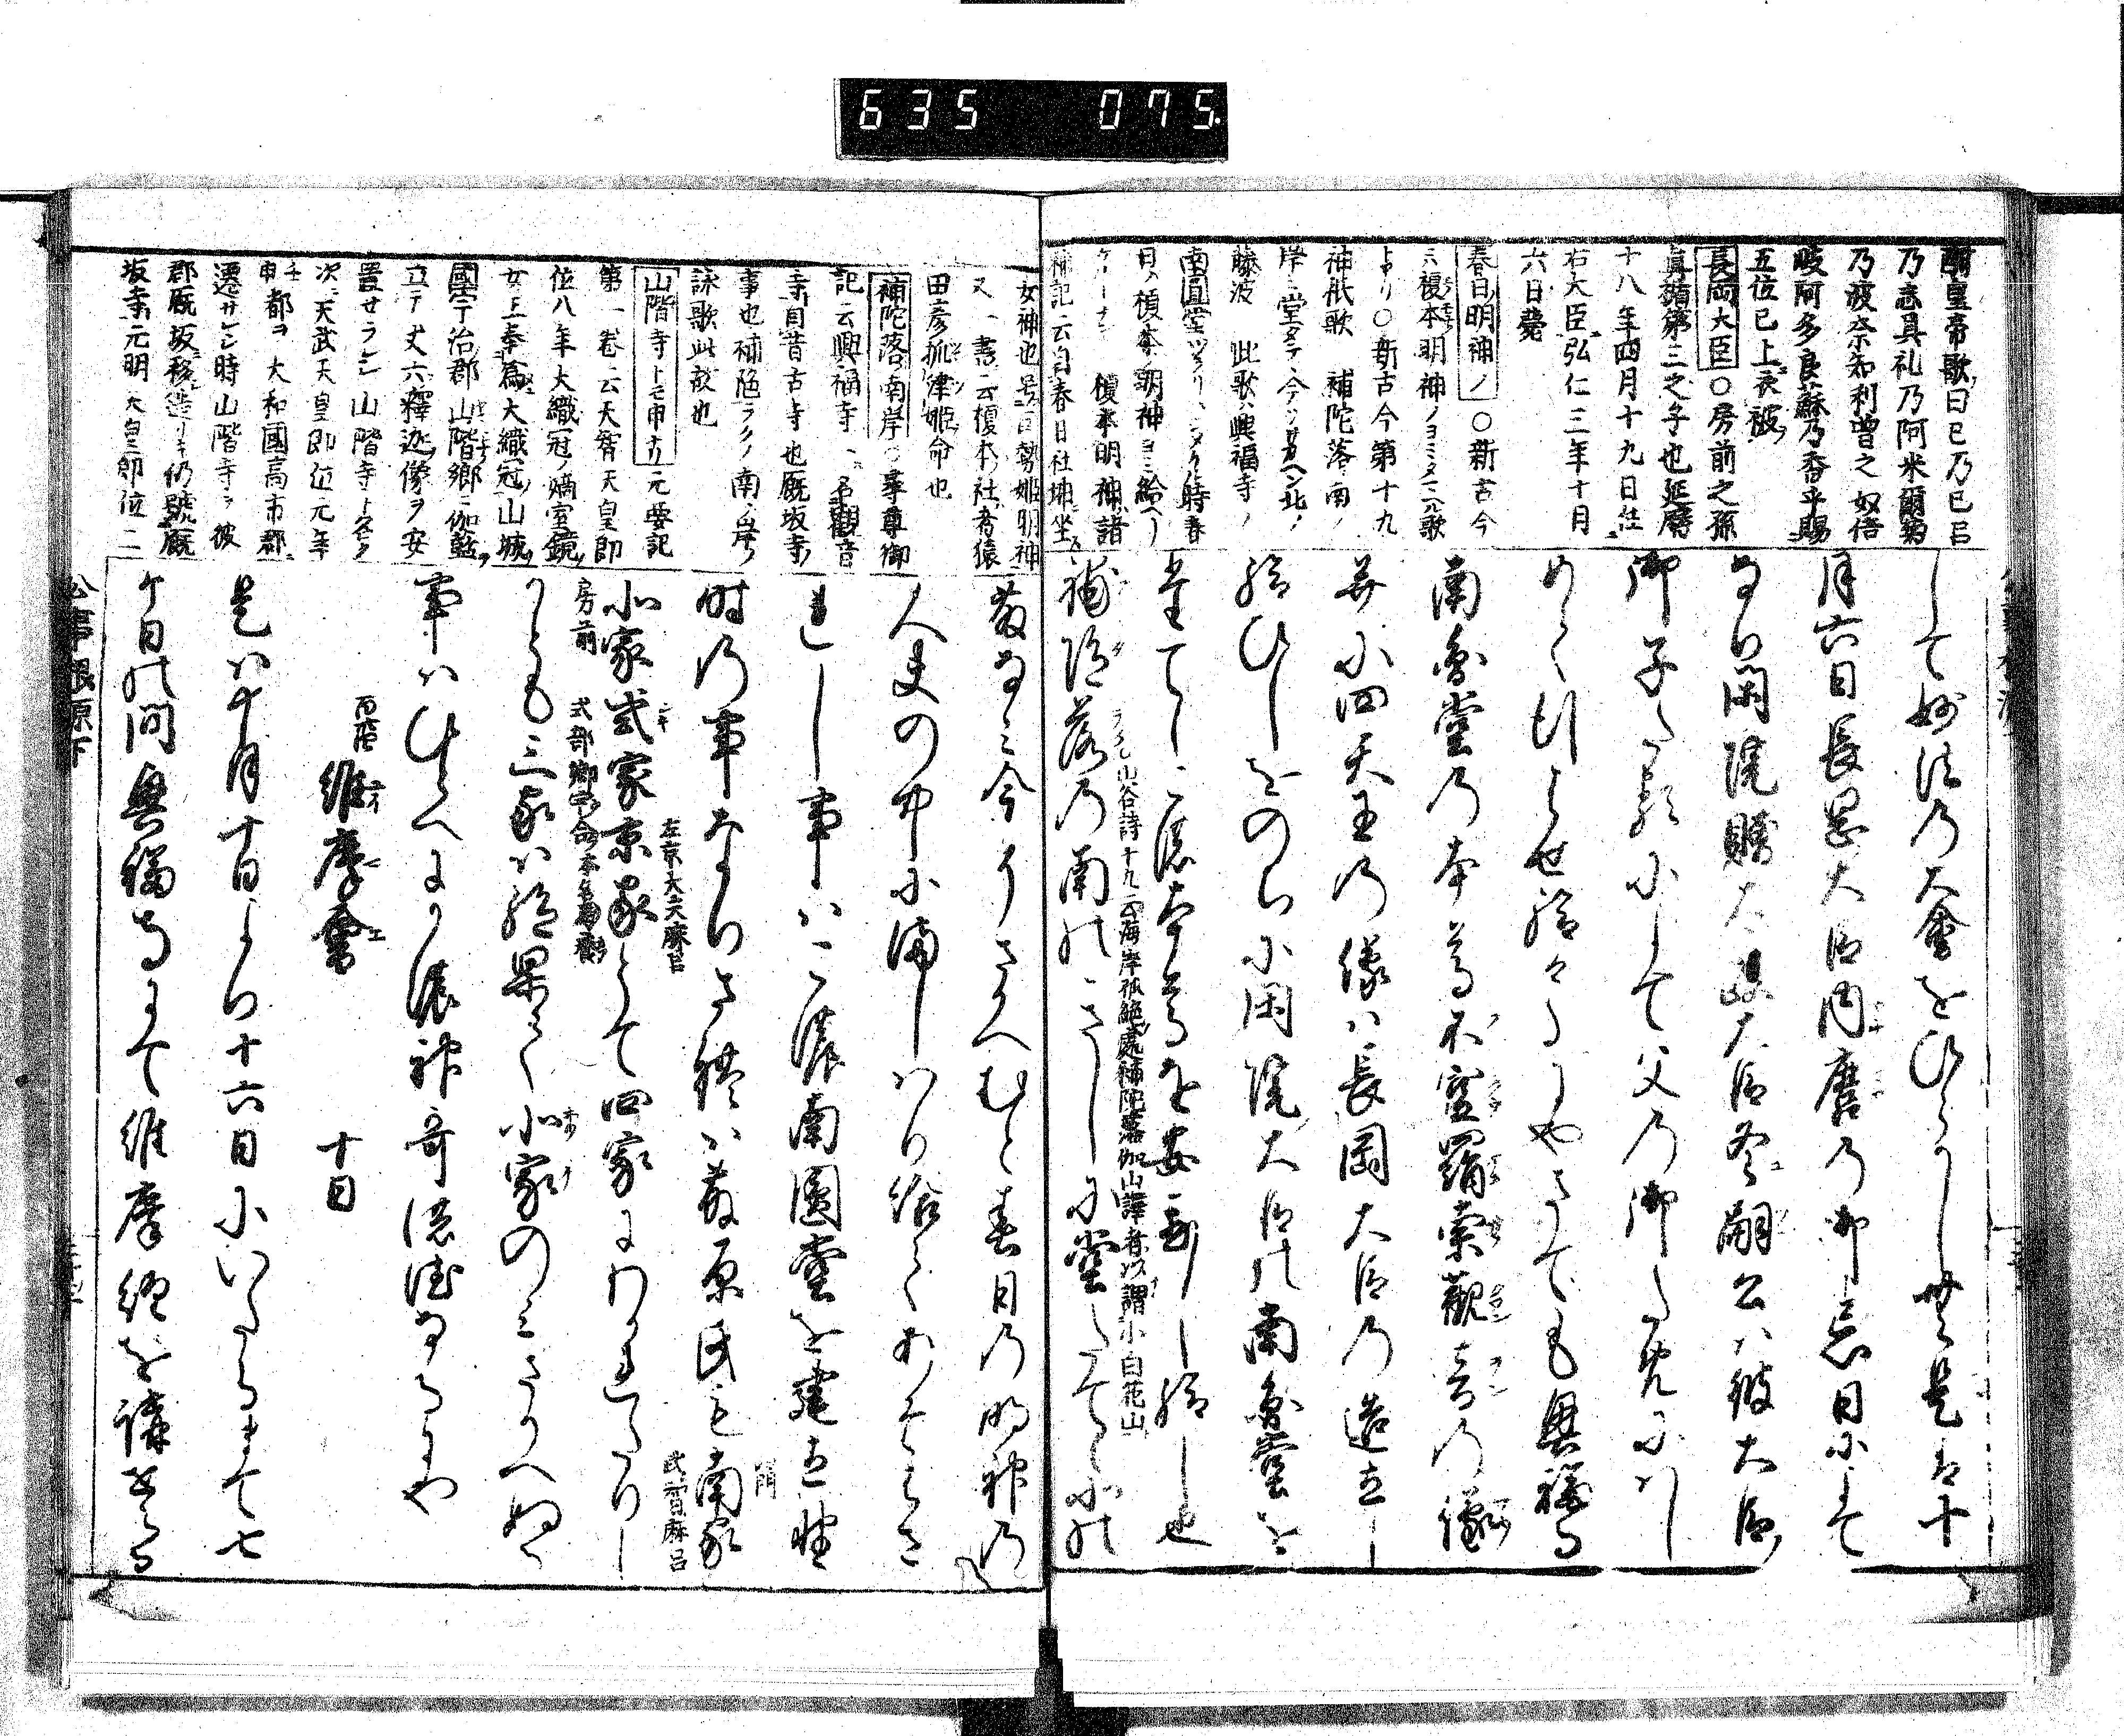 635 075
爾皇帝歌曰已乃已呂
乃志具礼乃阿米爾菊
乃波奈知利曽之奴倍
岐阿多良蘇乃香乎賜
五位已上衣被
長岡大臣○房前之孫
真楯第三之子也延暦
十八年四月十九日任
右大臣弘仁三年十月
六日薨
春日明神ノ○新古今
ニ榎本明神ノヨミタマヘル歌
トアリ○新古今第十九
神祇歌 補陀落ノ南ノ
岸ニ堂タテヽ今ソサカヘン北ノ
藤波 此歌ハ興福寺ノ
南圓堂ツクリハシメケル時春
日ノ榎本明神ヨミ給ヘリ
ケルトナン 榎本明神諸
神記云自春日社坤坐
して妙法乃大會をひらかし世らる是は十
月六日長岡大臣内麿乃御忌日にて
なり閑院贈太政大臣冬嗣公ハ彼大臣
御子たるにして父乃御ためにハし
めて行はせ給けるにやさても興福寺
南圓堂乃本尊不空羂索觀音乃像
并に四天王乃像ハ長岡大臣乃造立し
給ひしをのちに閑院大臣の南圓堂を
たてし此本尊を安置し給し也
山谷詩十九云海岸孤絶處補陀落伽山譯者以謂小白花山
補陀落乃南のきしに堂たてゝ北の
女神也号曰勢姫明神
又一書云榎本社者猿
田彦狐津姫命也
補陀落ノ南岸○尋尊御
記云興福寺ハ名觀音
寺自昔古寺也厩坂寺ノ
事也補陀ラクノ南ノ岸ノ
詠歌此故也
山階寺トモ申ス元要記
第一巻云天智天皇即
位八年大織冠ノ嫡室鏡
女王奉為大織冠山城
國宇治郡山階郷ニ伽藍
立テ丈六釋迦像ヲ安
置セラレシ山階寺ト名ク
次天武天皇即位元年
壬申都ヲ大和國高市郡
遷サレシ時山階寺ヲ彼
郡厩坂移造リキ仍號厩
坂寺元明天皇即位二
藤なミ今そさかへむと春日乃明神乃
人夫の中に降しハり給てあそはさ
れし事ハ此南圓堂を建立せ
時乃事なりさ程ハ藤原氏も南家
武智麻呂
北家式家京家とて四家にわかれたりし
左京大夫麻呂
房前 式部卿宇合本名馬養
かとも三家ハ給果て北家のミさかへぬる
事ハひとへにかの神哥徳なるにや
維摩會 十日
是ハ十月十日より十六日にいたるまて七
ケ日の間興福寺にて維摩經を講せらる
公事根源下